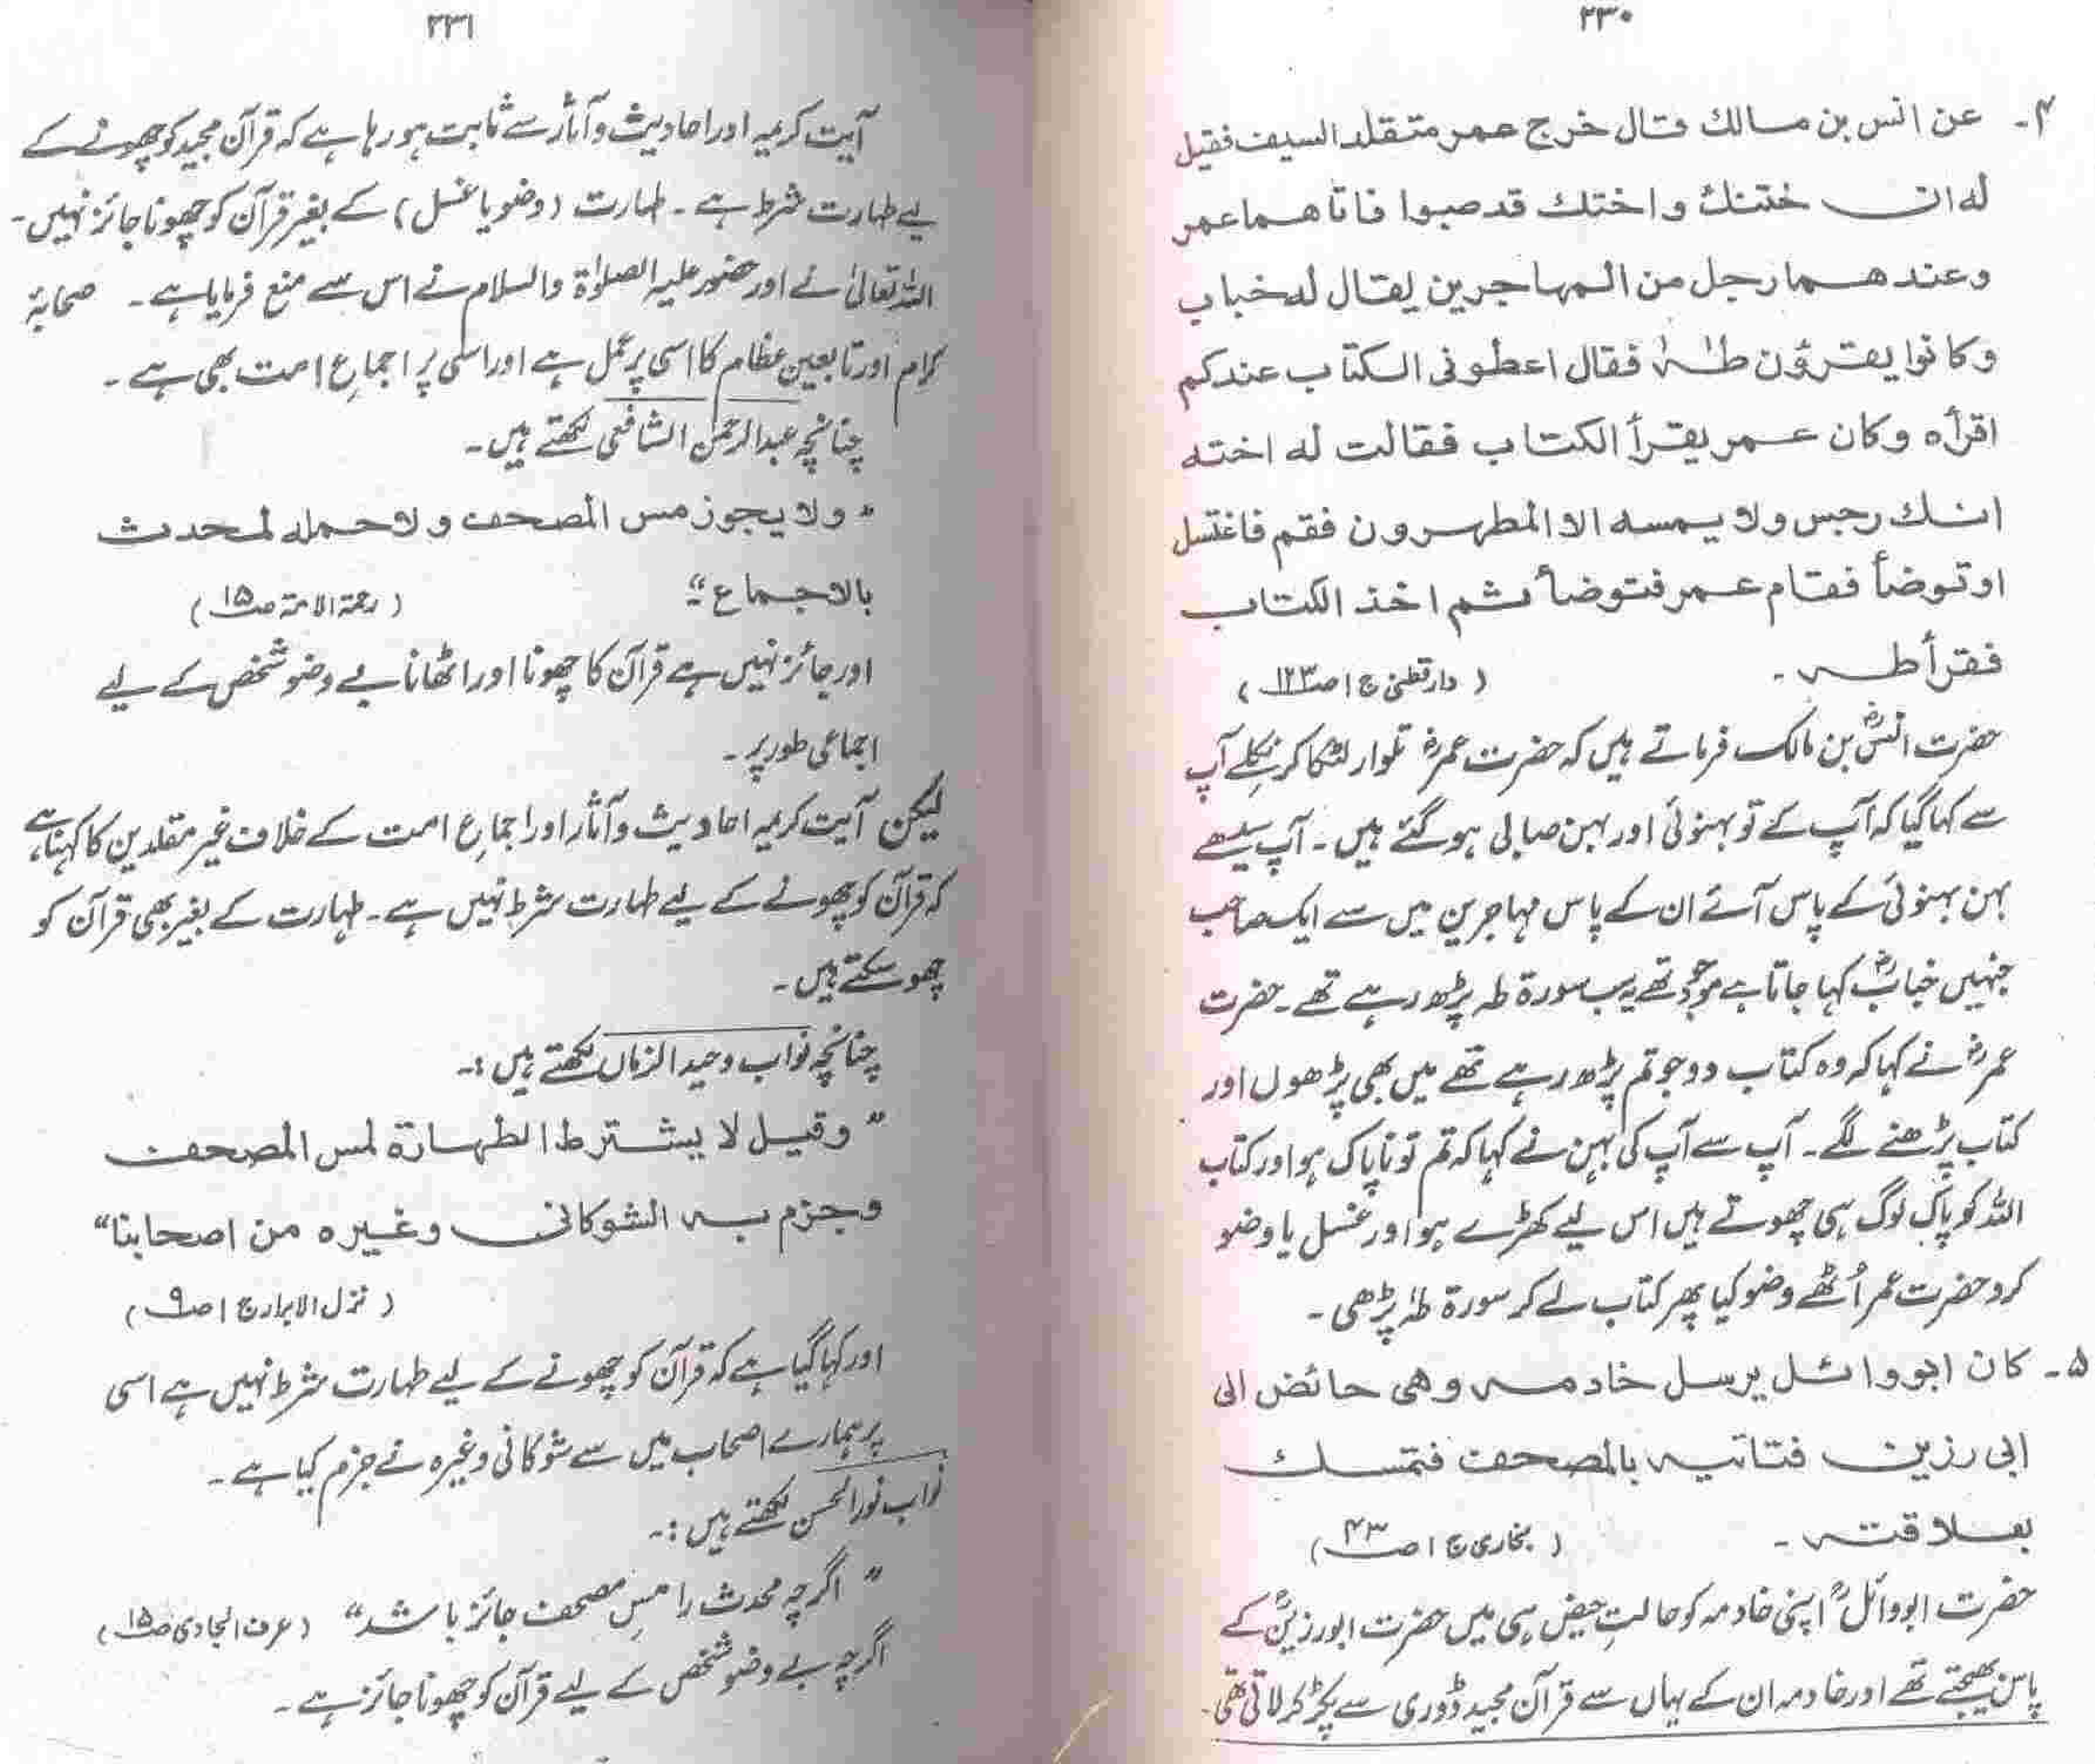 ۲۳۰
۴۔ عن انس بن مالك قال خرج عمر متقلد السيف فقيل
له ان ختنك واختك قد صبوا فاتاهما عمر
وعندهما رجل من المهاجرين يقال له خباب
وكانوا يقرؤن طٰهٰ فقال اعطونى الكتاب عندكم
اقرأه وكان عمر يقرأ الكتاب فقالت له اخته
انك رجس ولا يمسه الا المطهرون فقم فاغتسل
او توضأ فقام عمر فتوضأ ثم اخذ الكتاب
فقرأ طه ۔ (دارقطنی ج ۱ ص۱۲۳)
حضرت انسؓ بن مالک فرماتے ہیں کہ حضرت عمرؓ تلوار لٹکا کر نکلے آپ
سے کہا گیا کہ آپ کے تو بہنوئی اور بہن صابی ہو گئے ہیں ۔ آپ سیدھے
بہن بہنوئی کے پاس آئے ان کے پاس مہاجرین میں سے ایک صاحب
جنہیں خبابؓ کہا جاتا ہے موجود تھے یہ سب سورۃ طہ پڑھ رہے تھے ۔ حضرت
عمرؓ نے کہا کہ وہ کتاب دو جو تم پڑھ رہے تھے میں بھی پڑھوں اور
کتاب پڑھنے لگے ۔ آپ سے آپ کی بہن نے کہا کہ تم تو ناپاک ہو اور کتاب
اللہ کو پاک لوگ ہی چھوتے ہیں اس لیے کھڑے ہو اور غسل یا وضو
کرو حضرت عمر اُٹھے وضو کیا پھر کتاب لے کر سورۃ طہٰ پڑھی ۔
۵۔ كان ابو وائل يرسل خادمه وهى حائض الى
ابى رزين فتاتيه بالمصحف فتمسك
بعلاقته ۔ (بخاری ج ۱ ص۴۳)
حضرت ابووائلؒ اپنی خادمہ کو حالتِ حیض ہی میں حضرت ابورزینؒ کے
پاس بھیجتے تھے اور خادمہ ان کے یہاں سے قرآن مجید ڈوری سے پکڑ کر لاتی تھی۔
۲۳۱
آیت کریمہ اور احادیث و آثار سے ثابت ہو رہا ہے کہ قرآن مجید کو چھونے کے
لیے طہارت شرط ہے ۔ طہارت (وضو یا غسل) کے بغیر قرآن کو چھونا جائز نہیں ۔
اللہ تعالیٰ نے اور حضور علیہ الصلوٰۃ والسلام نے اس سے منع فرمایا ہے ۔ صحابۂ
کرام اور تابعین عظام کا اسی پر عمل ہے اور اسی پر اجماعِ امت بھی ہے ۔
چنانچہ عبدالرحمٰن الشافعی لکھتے ہیں ۔
” ولا يجوز مس المصحف ولا حمله لمحدث
بالاجماع “ (رحمۃ الامۃ ص۱۵)
اور جائز نہیں ہے قرآن کا چھونا اور اٹھانا بے وضو شخص کے لیے
اجماعی طور پر ۔
لیکن آیت کریمہ احادیث و آثار اور اجماعِ امت کے خلاف غیر مقلدین کا کہنا ہے
کہ قرآن کو چھونے کے لیے طہارت شرط نہیں ہے ۔ طہارت کے بغیر بھی قرآن کو
چھو سکتے ہیں ۔
چنانچہ نواب وحید الزماں لکھتے ہیں :۔
” وقيل لا يشترط الطهارة لمس المصحف
وجزم به الشوكانى وغيره من اصحابنا “
(نزل الابرار ج ۱ ص۹)
اور کہا گیا ہے کہ قرآن کو چھونے کے لیے طہارت شرط نہیں ہے اسی
پر ہمارے اصحاب میں سے شوکانی وغیرہ نے جزم کیا ہے ۔
نواب نور الحسن لکھتے ہیں :۔
” اگرچہ محدث را مسِ مصحف جائز باشد “ (عرف الجادی ص۱۵)
اگرچہ بے وضو شخص کے لیے قرآن کو چھونا جائز ہے ۔